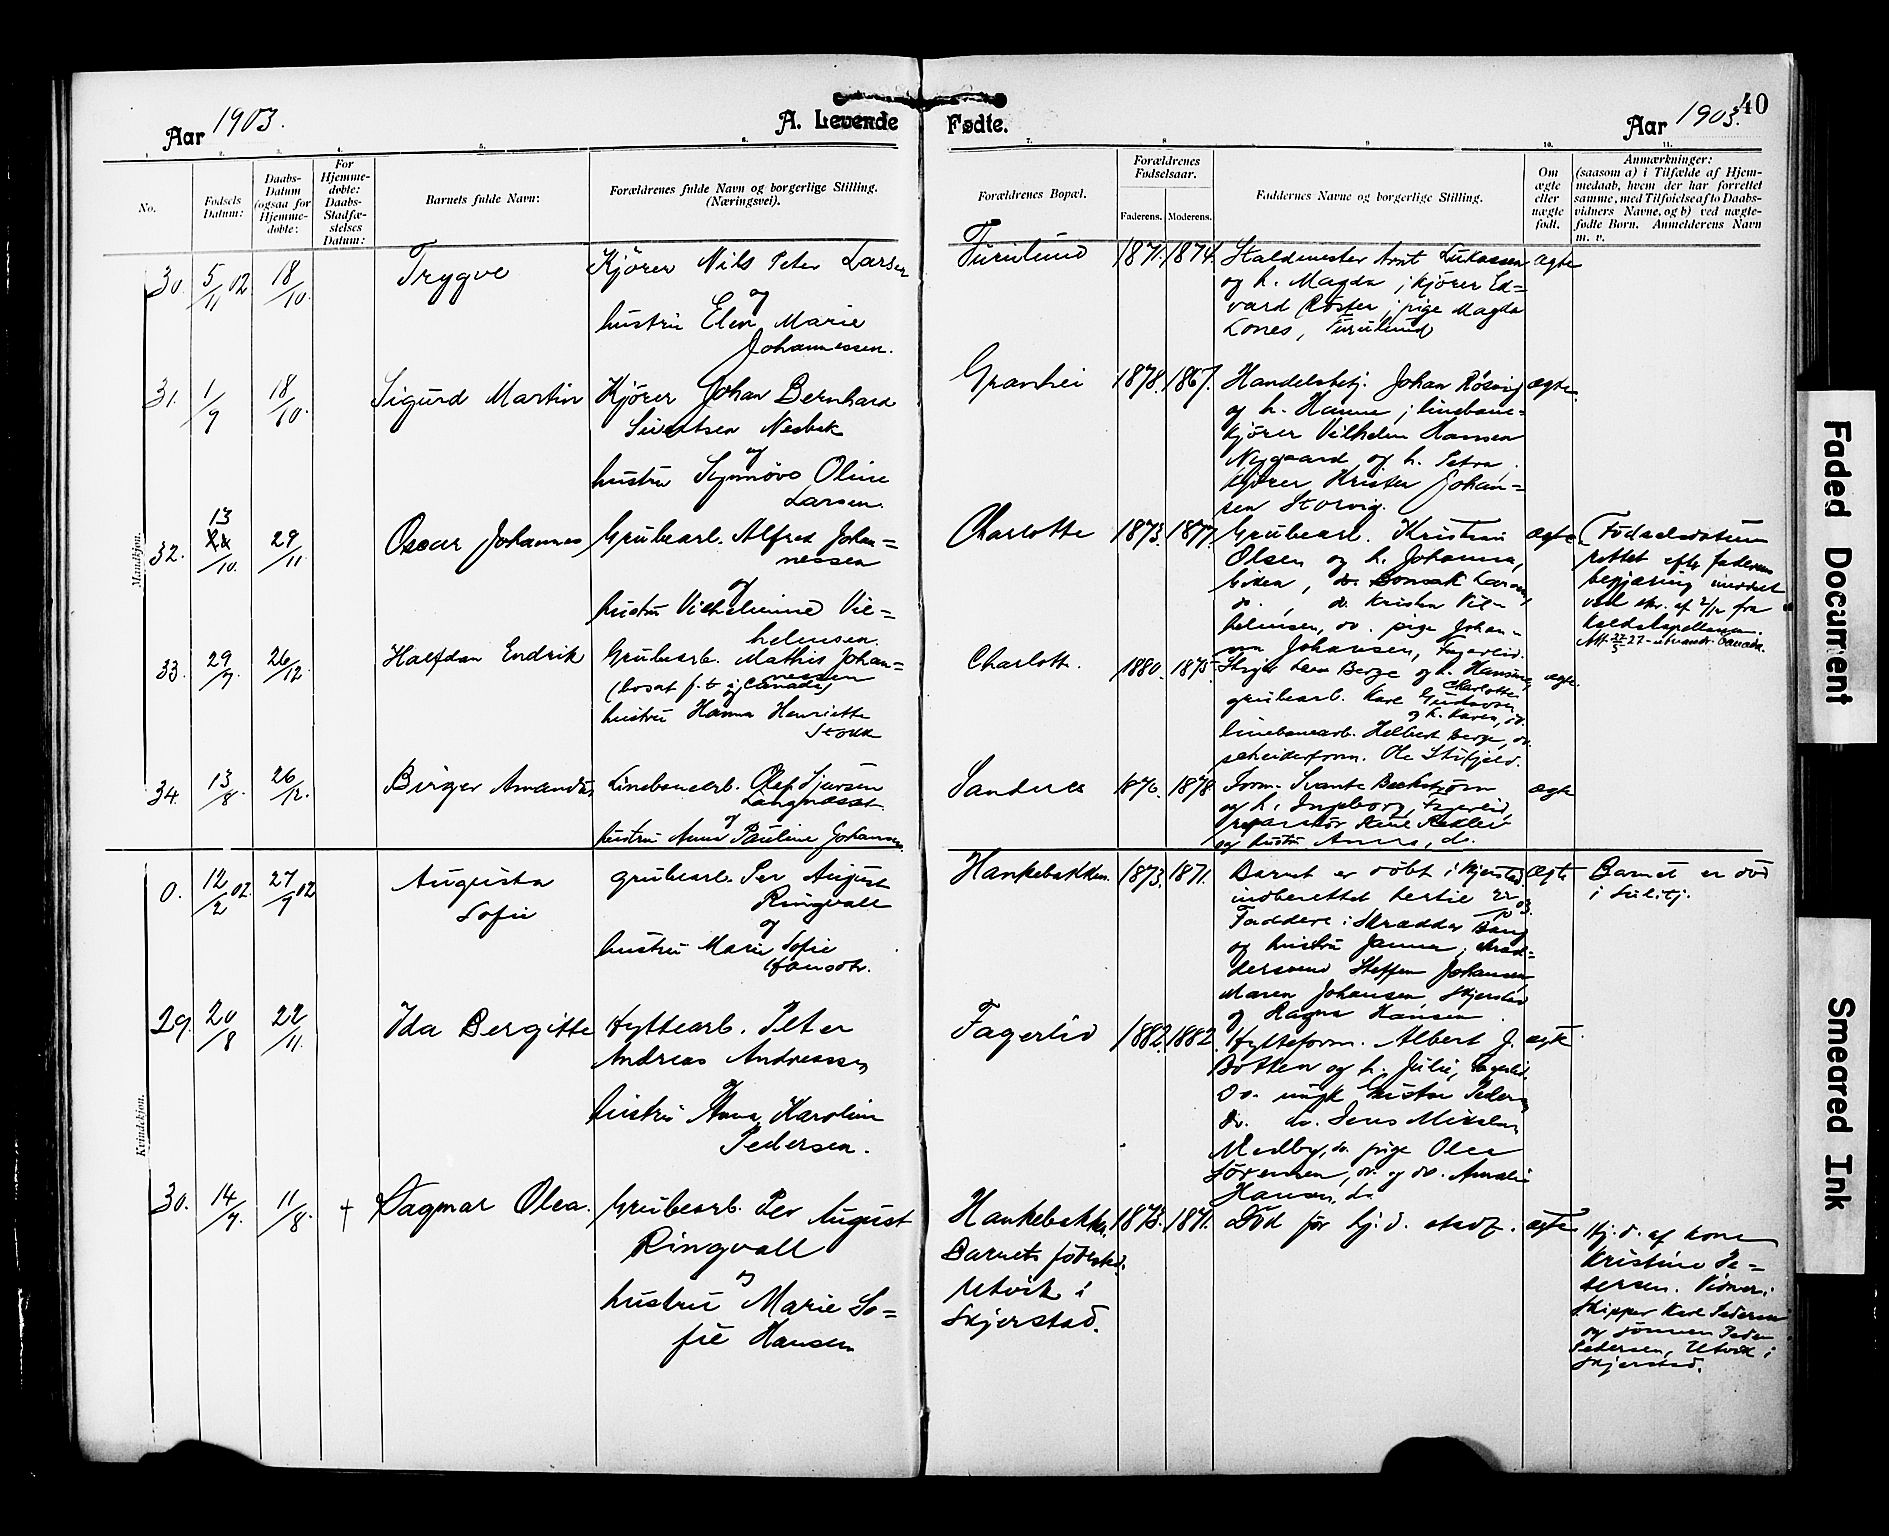 Aar 1903.
A. Levende
Fødte.
Aar 1903.
40
1. 2. 3. 4. 5. 6. 7. 8 9 10. 11.
No.
Fødsels
Datum:
Daabs-
Datum
(ogsaa for
Hjemme-
døbte:
For
Hjemme-
døbte:
Daabs-
Stadfæ-
stelses
Datum:
Barnets fulde Navn:
Forældrenes fulde Navn og borgerlige Stilling.
(Næringsvei).
Forældrenes Bopæl.
Forældrenes
Fødselsaar.
Faderens. Moderens.
Faddernes Navne og borgerlige Stilling.
Om
ægte
eller
uægte
født.
Anmærkninger:
(saasom a) i Tilfælde af Hjem-
medaab, hvem der har forrettet
samme, med Tilføielse af to Daabs-
vidners Navne, og b) ved uægte-
fødte Børn. Anmelderens Navn
m. v.
Mandkjøn.
30. 5/11 02 18/10.
Trygve
Kjører Nils Peter Larsen
og
hustru Elen Marie
Johannessen.
Furulund
1871. 1874.
Staldmester Arnt Lukassen
og h. Magda; kjører Ed=
vard Røster; pige Magda
Lones, Furulund
ægte
31. 1/9 18/10.
Sigurd Martin
Kjører Johan Bernhard
Sivertsen Nesbak
og
hustru Synnøve Oline
Larsen.
Granhei
1878. 1867.
Handelsbetj. Johan Røsvig
og h. Hanna; linebane=
kjører Vilhelm Hansen
Nygaard og h. Petra.
Kjører Krister Johan=
sen Storvig.
ægte.
32. 13/10. 29/11.
Oscar Johannes
Grubearb. Alfred Johan=
nessen
og
hustru Vilhelmine Vil=
helmsen.
Charlotta
1873. 1877.
Grubearb. Kristian
Olsen og h. Johanna,
do. , do. Kristen Vil=
helmsen, do. pige Johan=
na Johansen, Fagerlid.
ægte
(Fødselsdatum
rettet efter faderens
begjæring
ved skr. af 2/12 fra
Kaldskapellanen.
33. 29/9 26/12.
Halfdan Endrik
Grubearb. Mathis Johan=
nessen
(bosat p.t. i Canada)
og
hustru Hanna Henriette
Stokk
Charlotta.
1880. 1875.
Berge og h. Hansine,
Charlotta
grubearb. Karl Gustavsen
og h. Karen, do.
linebanearb. Helbert Berge, do.
scheiderform. Ole Stifjeld.
ægte.
34. 13/8. 26/12.
Birger Amandus
Linebanearb. Olef Sjursen
Langnæset
og
hustru Anna Pauline Johansen.
Sandnes
1876. 1878
Form. Svante Beckstrøm
og h. Ingeborg, Fagerlid,
og hustru Anna, do.
ægte
Kvindekjøn.
0. 12/2 02. 27/9 02
Augusta
Sofie
grubearb. Per August
Ringvall
og
hustru Marie Sofie
Hansdtr.
Hankebakken.
1873. 1871.
Barnet er døbt i Skjerstad
indberettet hertil 22/10 03.
Faddere: Skrædder Bang
og hustru Janna; skræd=
dersvend Steffen Johansen,
Maren Johansen, Skjerstad
og Ragna Hansen.
Ægte
Barnet er død
i Sulitj.
29. 20/8 22/11.
Ida Bergitte
Hyttearb. Peter
Andreas Andreassen
og
hustru Anna Karoline
Pedersen.
Fagerlid
1882. 1882.
Hytteform. Albert J.
Botten og h. Julie, Fagerlid.
do. ungk. Gustav Pedersen
do. do. Jens Mikelsen
Medby, do. pige Olea
Sørensen, do. og do. Amalie
Hansen, do.
ægte
30. 14/7. 11/8. +
Dagmar Olea.
Grubearb. Per August
Ringvall
og
hustru Marie So=
fie Hansen
Hankebakken.
Barnets fødested.
Utvik i
Skjerstad.
1873. 1871.
Død før hj.d. stadf.
ægte
Hj.d. af kone
Kristine Pe=
dersen. Vidner:
Skipper Karl Pedersen
og sønnen Peder
Pedersen, Utvik i
Skjerstad.
Faded Document
Smeared Ink